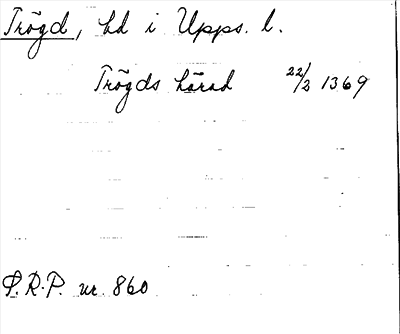 Trögd, hd i Upps. l.
Trögds härad 22/2 1369
P.R.P. nr. 860